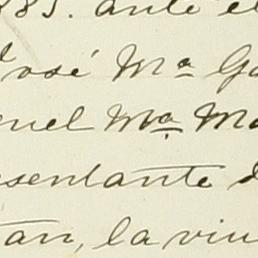 1885. ante el
José Mª Ga
nuel Mª Ma
esentante d
tan, la viu